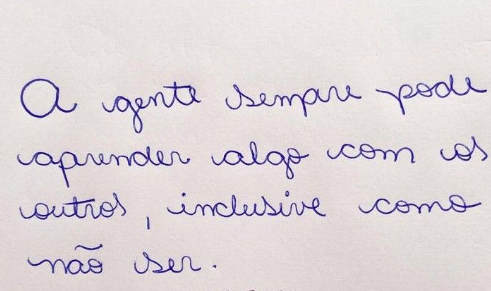 A gente sempre pode
aprender algo com os
outros, inclusive como
não ser.